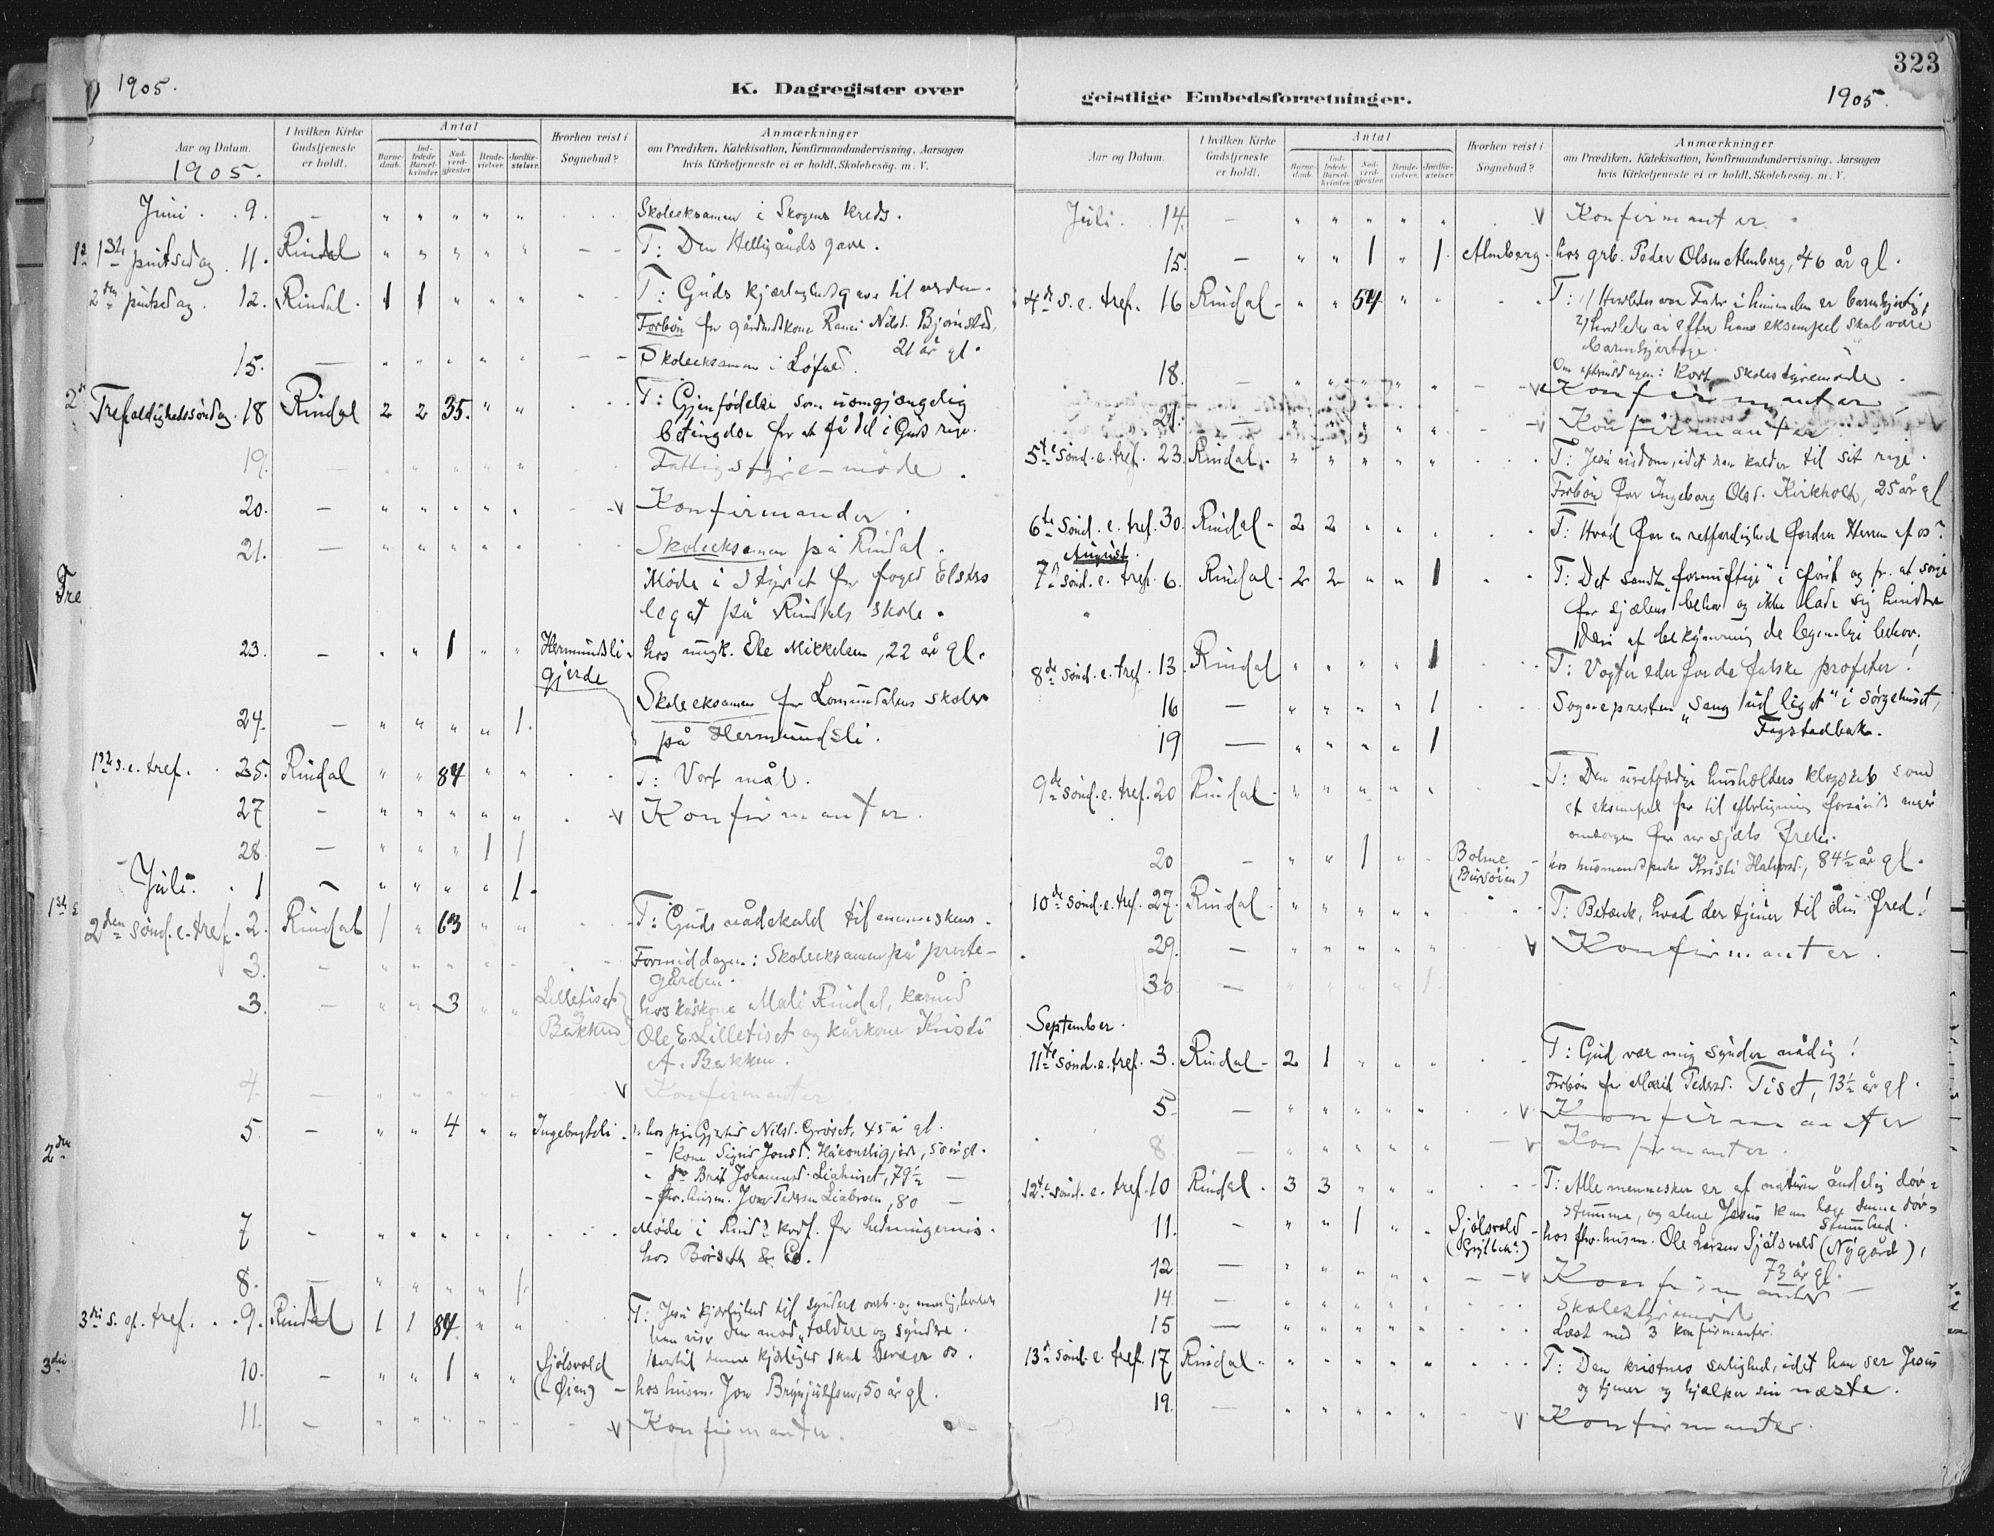 1905.
K. Dagregister over
Aar og Datum.
1905.
I hvilken Kirke Gudstjeneste er holdt.
Antal
Barnedaab.
Indledede Barselkvinder.
Nadverdgjæster.
Brudevielser.
Jordfæstelser.
Hvorhen reist i Sognebud?
Anmærkninger
om Prædiken, Katekisation, Konfirmandundervisning. Aarsagen
hvis Kirketjeneste ei er holdt. Skolebesøg. m. V.
Juni . . 9. — " " " " " Skoleeksamen i Skogens kreds.
1ste pintsedag . 11. Rindal " " " " " — — T: Den Helligånds gave.
2den pintsedag. 12. Rindal. 1 1 " " " T: Guds kjærlighedsgave til verden.
Forbøn for gårdmdskone Nilsd. Bjørnstad,
21 år gl.
15. — " " " " " — — Skoleeksamen i Løfald.
Trefoldighedssøndag. 18 Rindal 2 2 35. " " T: Gjenfødelse som uomgjængelig
betingelse for at få del i Guds rige.
19. — " " " " " Fattigstyre-møde.
20. — " " " " " V Konfirmander.
21. — " " " " " Skoleeksamen på Rindal.
Møde i Styret for foged Elsters
legat på Rindals skole.
23. — " " 1 " " Hermundsli-
gjerde hos ungk. Ole Mikkelsen, 22 år gl.
24. — " " " " 1. Skoleeksamen for Lomundalens skoler
på Hermundsli.
1ste s. e. tref. . 25. Rindal " " 84 " " T: Vort mål.
27 — " " " " " V Konfirmanter.
28. — " " " 1 1
Juli. . 1 — " " " " 1.
2den sønd. e. tref. 2. Rindal 1 " 63 " " T: Guds nådekald til menneskene.
3. — " " " " " Formiddagen: Skoleeksamen på preste-
gården.
3. — " " 3 " " Lilletiset
og
Bakken hos kåkone Mali Rindal, kårmd
Ole E. Lilletiset og kårkone Kristi
A. Bakken.
4. — " " " " " V Konfirmanter.
5. — " " 4 " " Ingebrigtsli . hos Nilsd. Grøset, 45 år gl.
— kone Sigrid Jonsd. Håkonsligjerde, 50 år gl.
— do Brit Johannesd. Liahuset, 79½ —
— Jon Pedersen Liabroen, 80 —
7 — " " " " " Møde i Rind. kvdf. for hedningemis.
hos Børseth & Co.
8. — " " " " 1.
3die s. e. tref. . . 9. Rindal 1 1 84. " " T: Jesu kjærlighed til syndere
han viser den mod "toldere og syndere.
Hvortil denne kjærlighed skal bevæge os.
10. — " " 1 " " Sjølsvold
(Øien) — hos husm. Jon Brynjulfsen, 50 år gl.
11. — " " " " " V Konfirmanter.
323
geistlige Embedsforretninger.
1905.
Aar og Datum.
I hvilken Kirke Gudstjeneste er holdt.
Antal
Barnedaab.
Indledede Barselkvinder.
Nadverdgjæster.
Brudevielser.
Jordfæstelser.
Hvorhen reist i Sognebud?
Anmærkninger
om Prædiken, Katekisation, Konfirmandundervisning. Aarsagen
hvis Kirketjeneste ei er holdt. Skolebesøg. m. V.
Juli. 14. — " " " " " V Konfirmanter.
15. — " " 1 " 1. Almberg. hos grb. Peder Olsen Almberg, 46 år gl.
4de s. e. tref. 16 Rindal " " 54 " " T: 1/ Hvorledes vor Fader i himmelen er barmhjertig,
2/ hvorledes vi efter hans eksempel skal være
barmhjertige.
Om eftermiddagen: kort skolestyremøde.
18. — " " " " " — V Konfirmanter
21. — " " " " " — V Konfirmanter.
5te sønd. e. tref. 23. Rindal. " " " " " T: Jesu visdom, idet han kalder til sit rige.
Forbøn for Ingeborg Olsd. Kirkholt, 25 år gl.
6te sønd. e. tref. 30. Rindal 2 2 " " . T: Hvad for en retfærdighed fordrer Herren af os?
August.
7de sønd. e. tref. 6. Rindal 2 2 " " 1 T: Det sandt "fornuftige" i først og fr. at sørge
for sjælens behov og ikke lade sig hindre
deri af bekymring de legemlige behov.
8de sønd. e. tref. 13. Rindal " " " " 1 T: Vogter eder for de falske profeter!
16 — " " " " 1 Sognepresten "sang ud liget" i sørgehuset,
Fagstadbak.
19 — " " " " 1
9de sønd. e. tref. 20 Rindal. " " " " . T: Den uretfærdige husholders klogskab som
et eksempel for til efterligning
omsorgen for vor sjæls frelse.
20 — " " 1 " . Bolme
(Bursøien) hos Kristi Halvorsd., 84½ år gl.
10de sønd. e. tref. 27. Rindal. " " " " " T: Betænk, hvad der tjener til din fred!
29. — " " " " " V Konfirmanter.
30 — " " " " 1.
September.
11te sønd. e. tref. 3. Rindal 2 1 " " " T: Gud vær mig synder nådig!
Forbøn for Marit Pedersd. Tiset, 13½ år gl.
5. — " " " " " V Konfirmanter
8 — " " " " " — V Konfirmanter.
12te sønd. e. tref. 10 Rindal. 3 3 " " " T: Alle mennesker er af naturen åndelig døv-
stumme, og alene Jesus kan læge denne døv-
stumhed.
11. — " " 1 " . Sjølsvold
hos Ole Larsen Sjølsvold (Nygård),
73 år gl.
12 — " " " " " — V Konfirmanter
14. — " " " " " Skolestyremøde
15 — " " " " " Læst med 3 konfirmanter.
13de sønd. e. tref. 17 Rindal. " " " " " T: Den kristnes salighed, idet han ser Jesus
og tjener og hjælper sin næste.
19. — " " " " " V Konfirmanter.